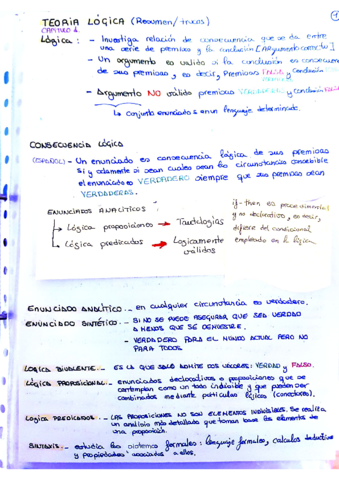 TEORÍA LÓGICA (Resumen/trucos)
1
CAPÍTULO 1.
Lógica: - Investiga relación de consecuencia que se da entre
una serie de premisas y la conclusión [Argumento correcto]
- Un argumento es válido si la conclusión es consecuencia
de sus premisas, es decir, Premisas FALSAS y Conclusión
- Argumento NO válido premisas VERDADERAS y conclusión FALSA
↳ conjunto enunciados en un lenguaje determinado.
CONSECUENCIA LÓGICA
(ESPAÑOL) - Un enunciado es consecuencia lógica de sus premisas
si y solamente si sean cuales sean las circunstancias concebible
el enunciado es VERDADERO siempre que sus premisas sean
VERDADERAS.
ENUNCIADOS ANALÍTICOS:
↳ Lógica proposiciones → Tautologías
↳ Lógica predicados → Logicamente
válidos
if-then es procedimental
y no declarativo, es decir,
difiere del condicional
empleado en la lógica
ENUNCIADO ANALÍTICO.- en cualquier circunstancia es verdadero.
ENUNCIADO SINTÉTICO.- SI NO SE PUEDE ASEGURAR QUE SEA VERDAD
A MENOS QUE SE DEMUESTRE.
- VERDADERO PARA EL MUNDO ACTUAL PERO NO
PARA TODOS
LOGICA BIVALENTE.- ES LA QUE SOLO ADMITE DOS VALORES: VERDAD y FALSO.
LÓGICA PROPOSICIONAL.- enunciados declarativos o proposiciones que se
contemplan como un todo indivisible y que pueden ser
combinados mediante partículas lógicas (conectores).
LOGICA PREDICADOS.- LAS PROPOSICIONES NO SON ELEMENTOS INDIVISIBLES. Se realiza
un análisis más detallado que toman base los elementos de
una proposición.
SINTAXIS.- estudia los sistemas formales: lenguaje formales, calculos deductivos
y propiedades asociados a ellos.